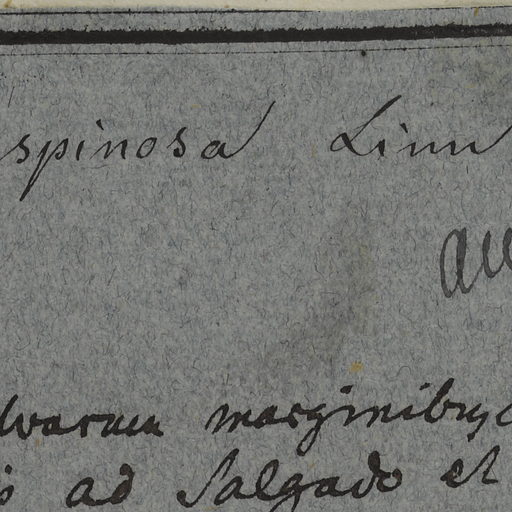 spinosa Linn
au
lvarum marginibus
ad Salgado et